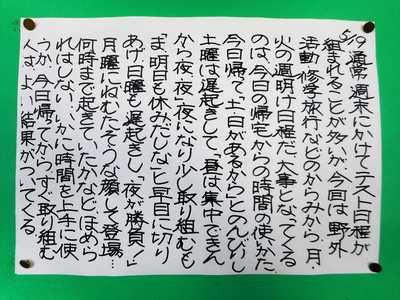 5/19 通常、週末にかけてテスト日程が
組まれることが多いが、今回は、野外
活動・修学旅行などのからみから、月・
火の週明け日程だ。大事となってくる
のは、今日の帰宅からの時間の使いかた
今日帰って「土日があるから」とのんびりし
土曜は遅起きして、昼は集中できん
から夜、夜、夜になり少し取り組むも
「ま、明日も休みだし」などと早目に切り
あげ、日曜も遅起きし、「夜が勝負!」
月曜にねむたそうな顔して登場…
何時まで起きていたかなど、ほめら
れはしない、いかに時間を上手に使
うか、今日帰ってからすぐ取り組む
人はよい結果がついてくる